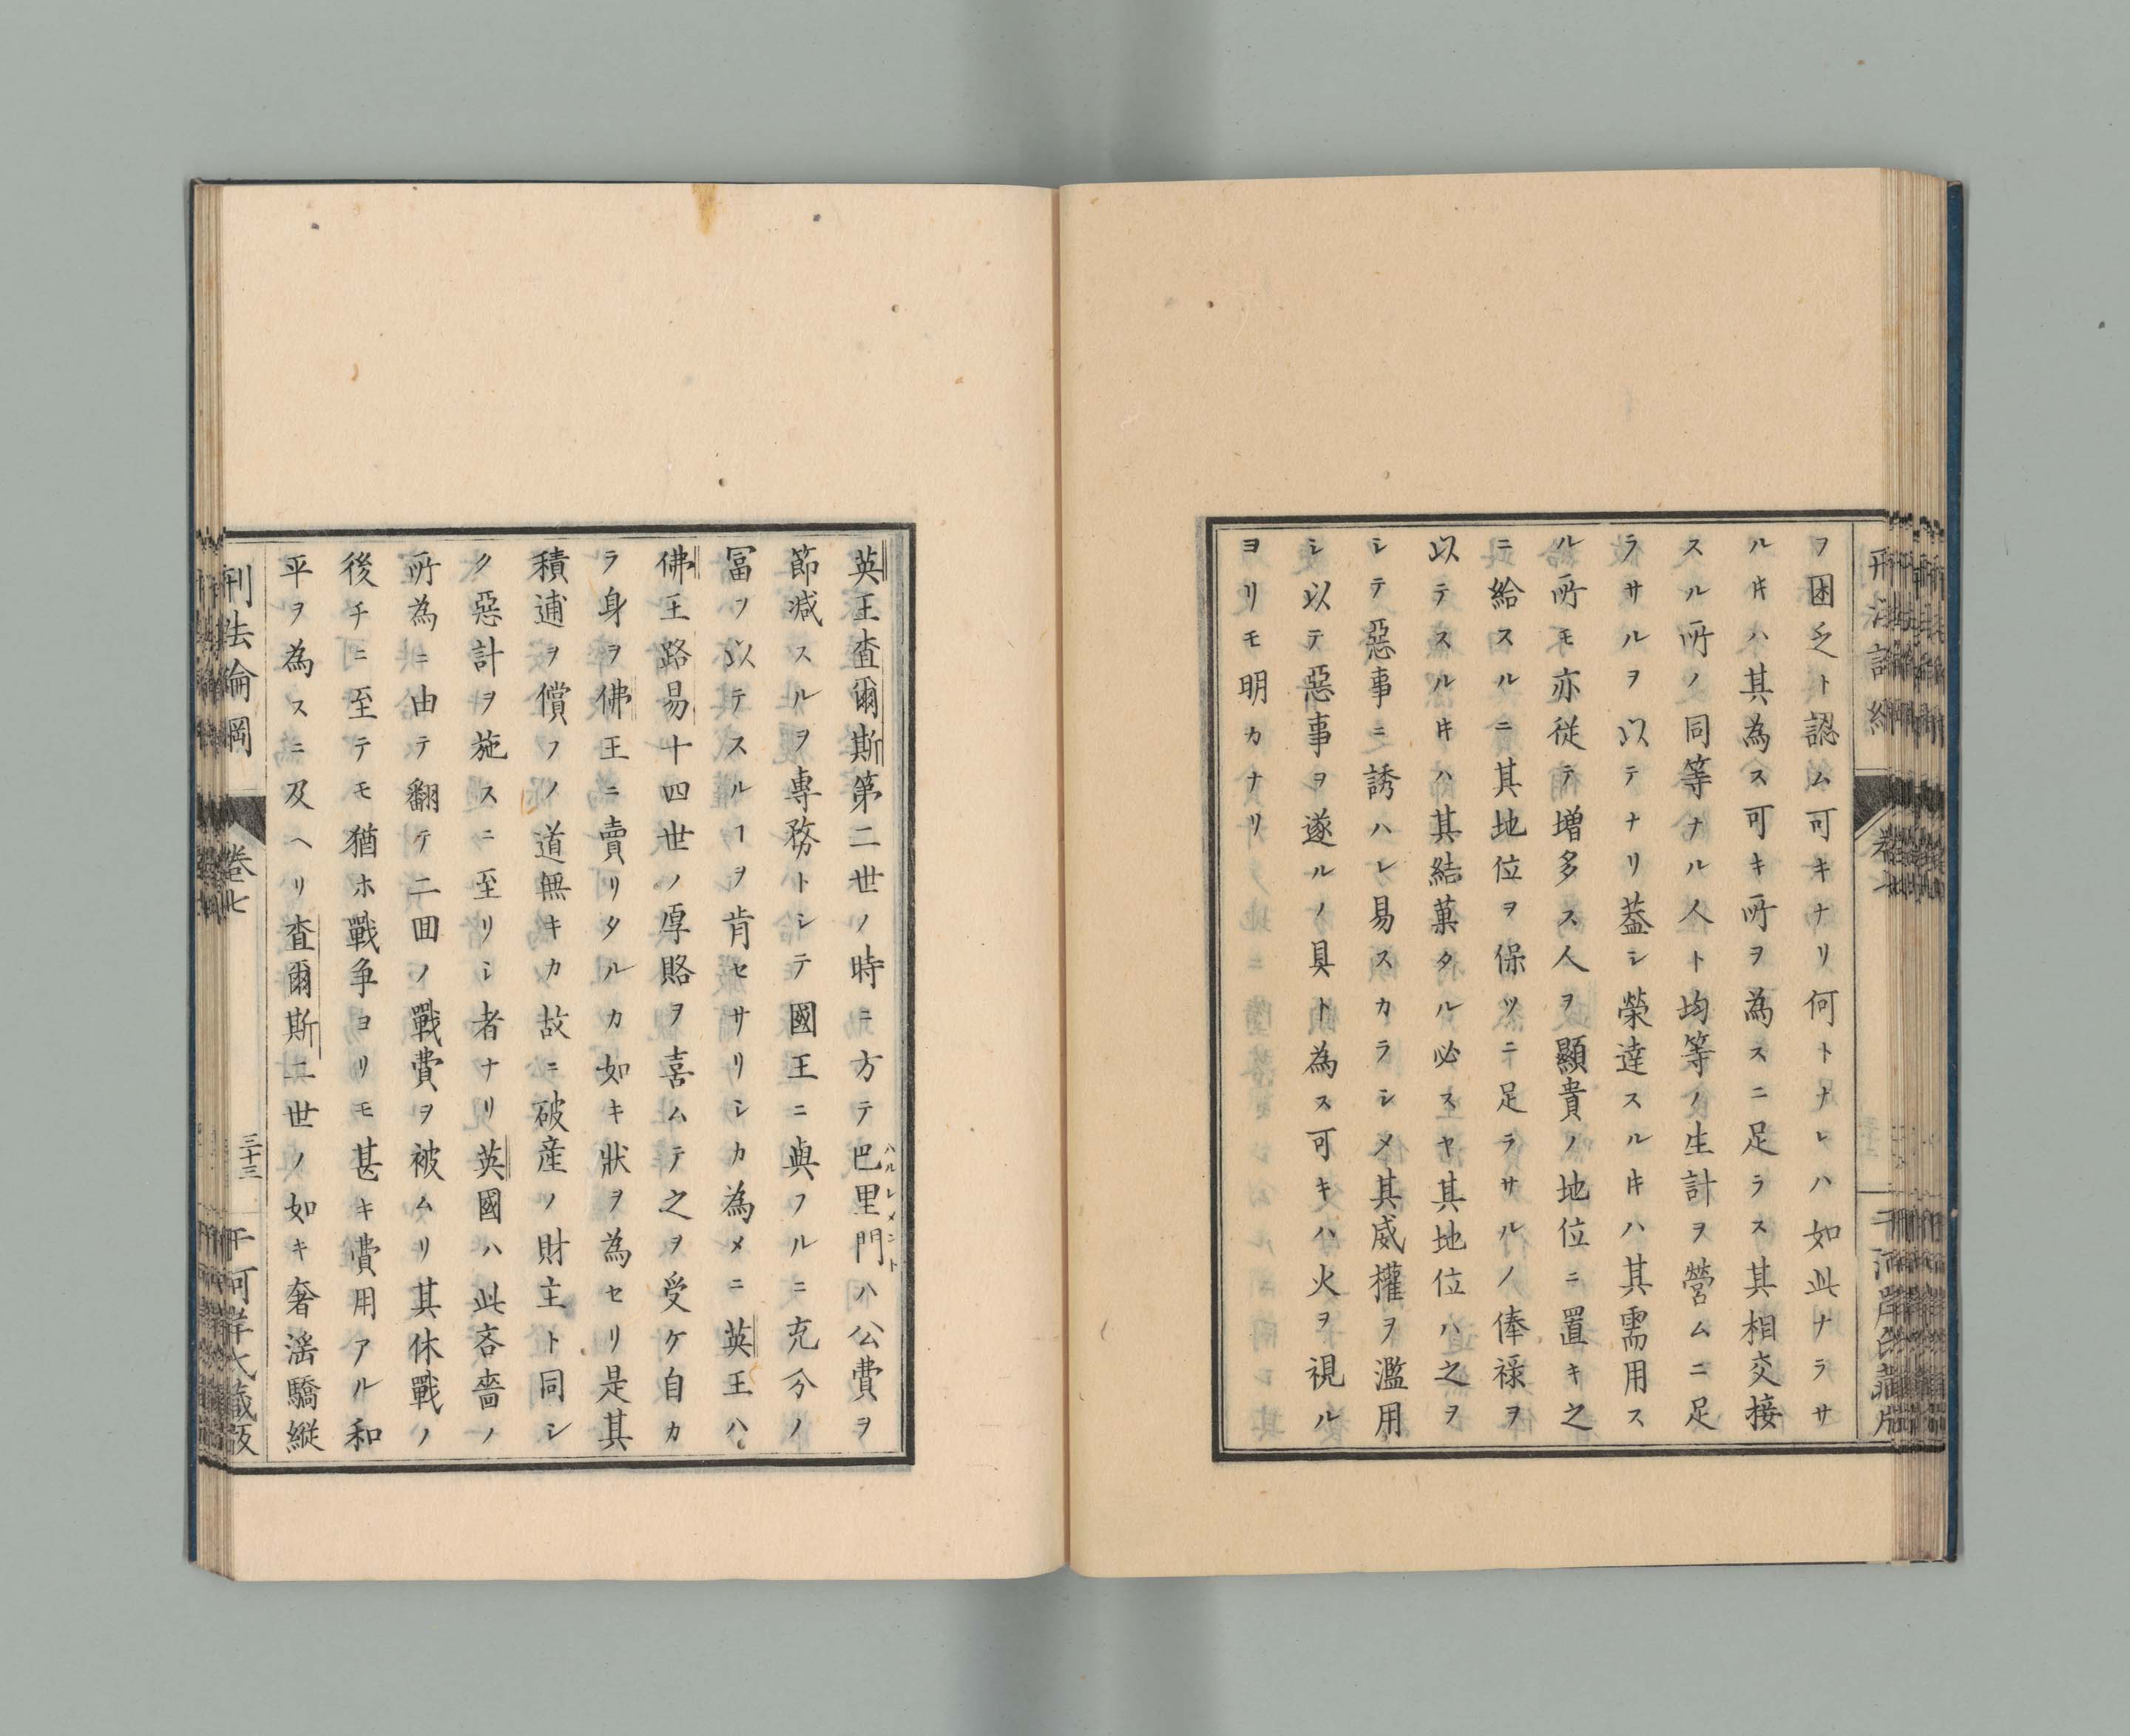 ヲ困乏ト認ム可キナリ何トナレハ如此ナラサ
ルㇰハ其為ス可キ所ヲ為スニ足ラス其相交接
スル所ノ同等ナル人ト均等ノ生計ヲ營ムニ足
ラサルヲ以テナリ蓋シ榮達スル𪜈ハ其需用ス
ル所モ亦従テ増多ス人ヲ顯貴ノ地位ニ置キ之
ニ給スルニ其地位ヲ保ツニ足ラサルノ俸禄ヲ
以テスル𪜈ハ其結菓タル必スヤ其地位ハ之ヲ
シテ惡事ニ誘ハレ易スカラシメ其威權ヲ濫用
シ以テ惡事ヲ遂ルノ具ト為ス可キハ火ヲ視ル
ヨリモ明カナリ
英王査爾斯第二世ノ時ニ方テ巴里門ハ公費ヲ
ハルレメント
節减スルヲ專務トシテ國王ニ與フルニ充分ノ
冨ヲ以テスルヿヲ肯セサリシカ為メニ英王ハ
佛王路易十四世ノ厚賂ヲ喜ムテ之ヲ受ケ自カ
ラ身ヲ佛王ニ賣リタルカ如キ狀ヲ為セリ是其
積逋ヲ償フノ道無キカ故ニ破産ノ財主ト同シ
ク惡計ヲ施スニ至リシ者ナリ英國ハ此吝嗇ノ
所為ニ由テ翻テ二囬ノ戰費ヲ被ムリ其休戰ノ
後チニ至テモ猶ホ戰争ヨリモ甚キ費用アル和
平ヲ為スニ及ヘリ査爾斯二世ノ如キ奢滛驕縦
刑法論綱
卷七
三十三